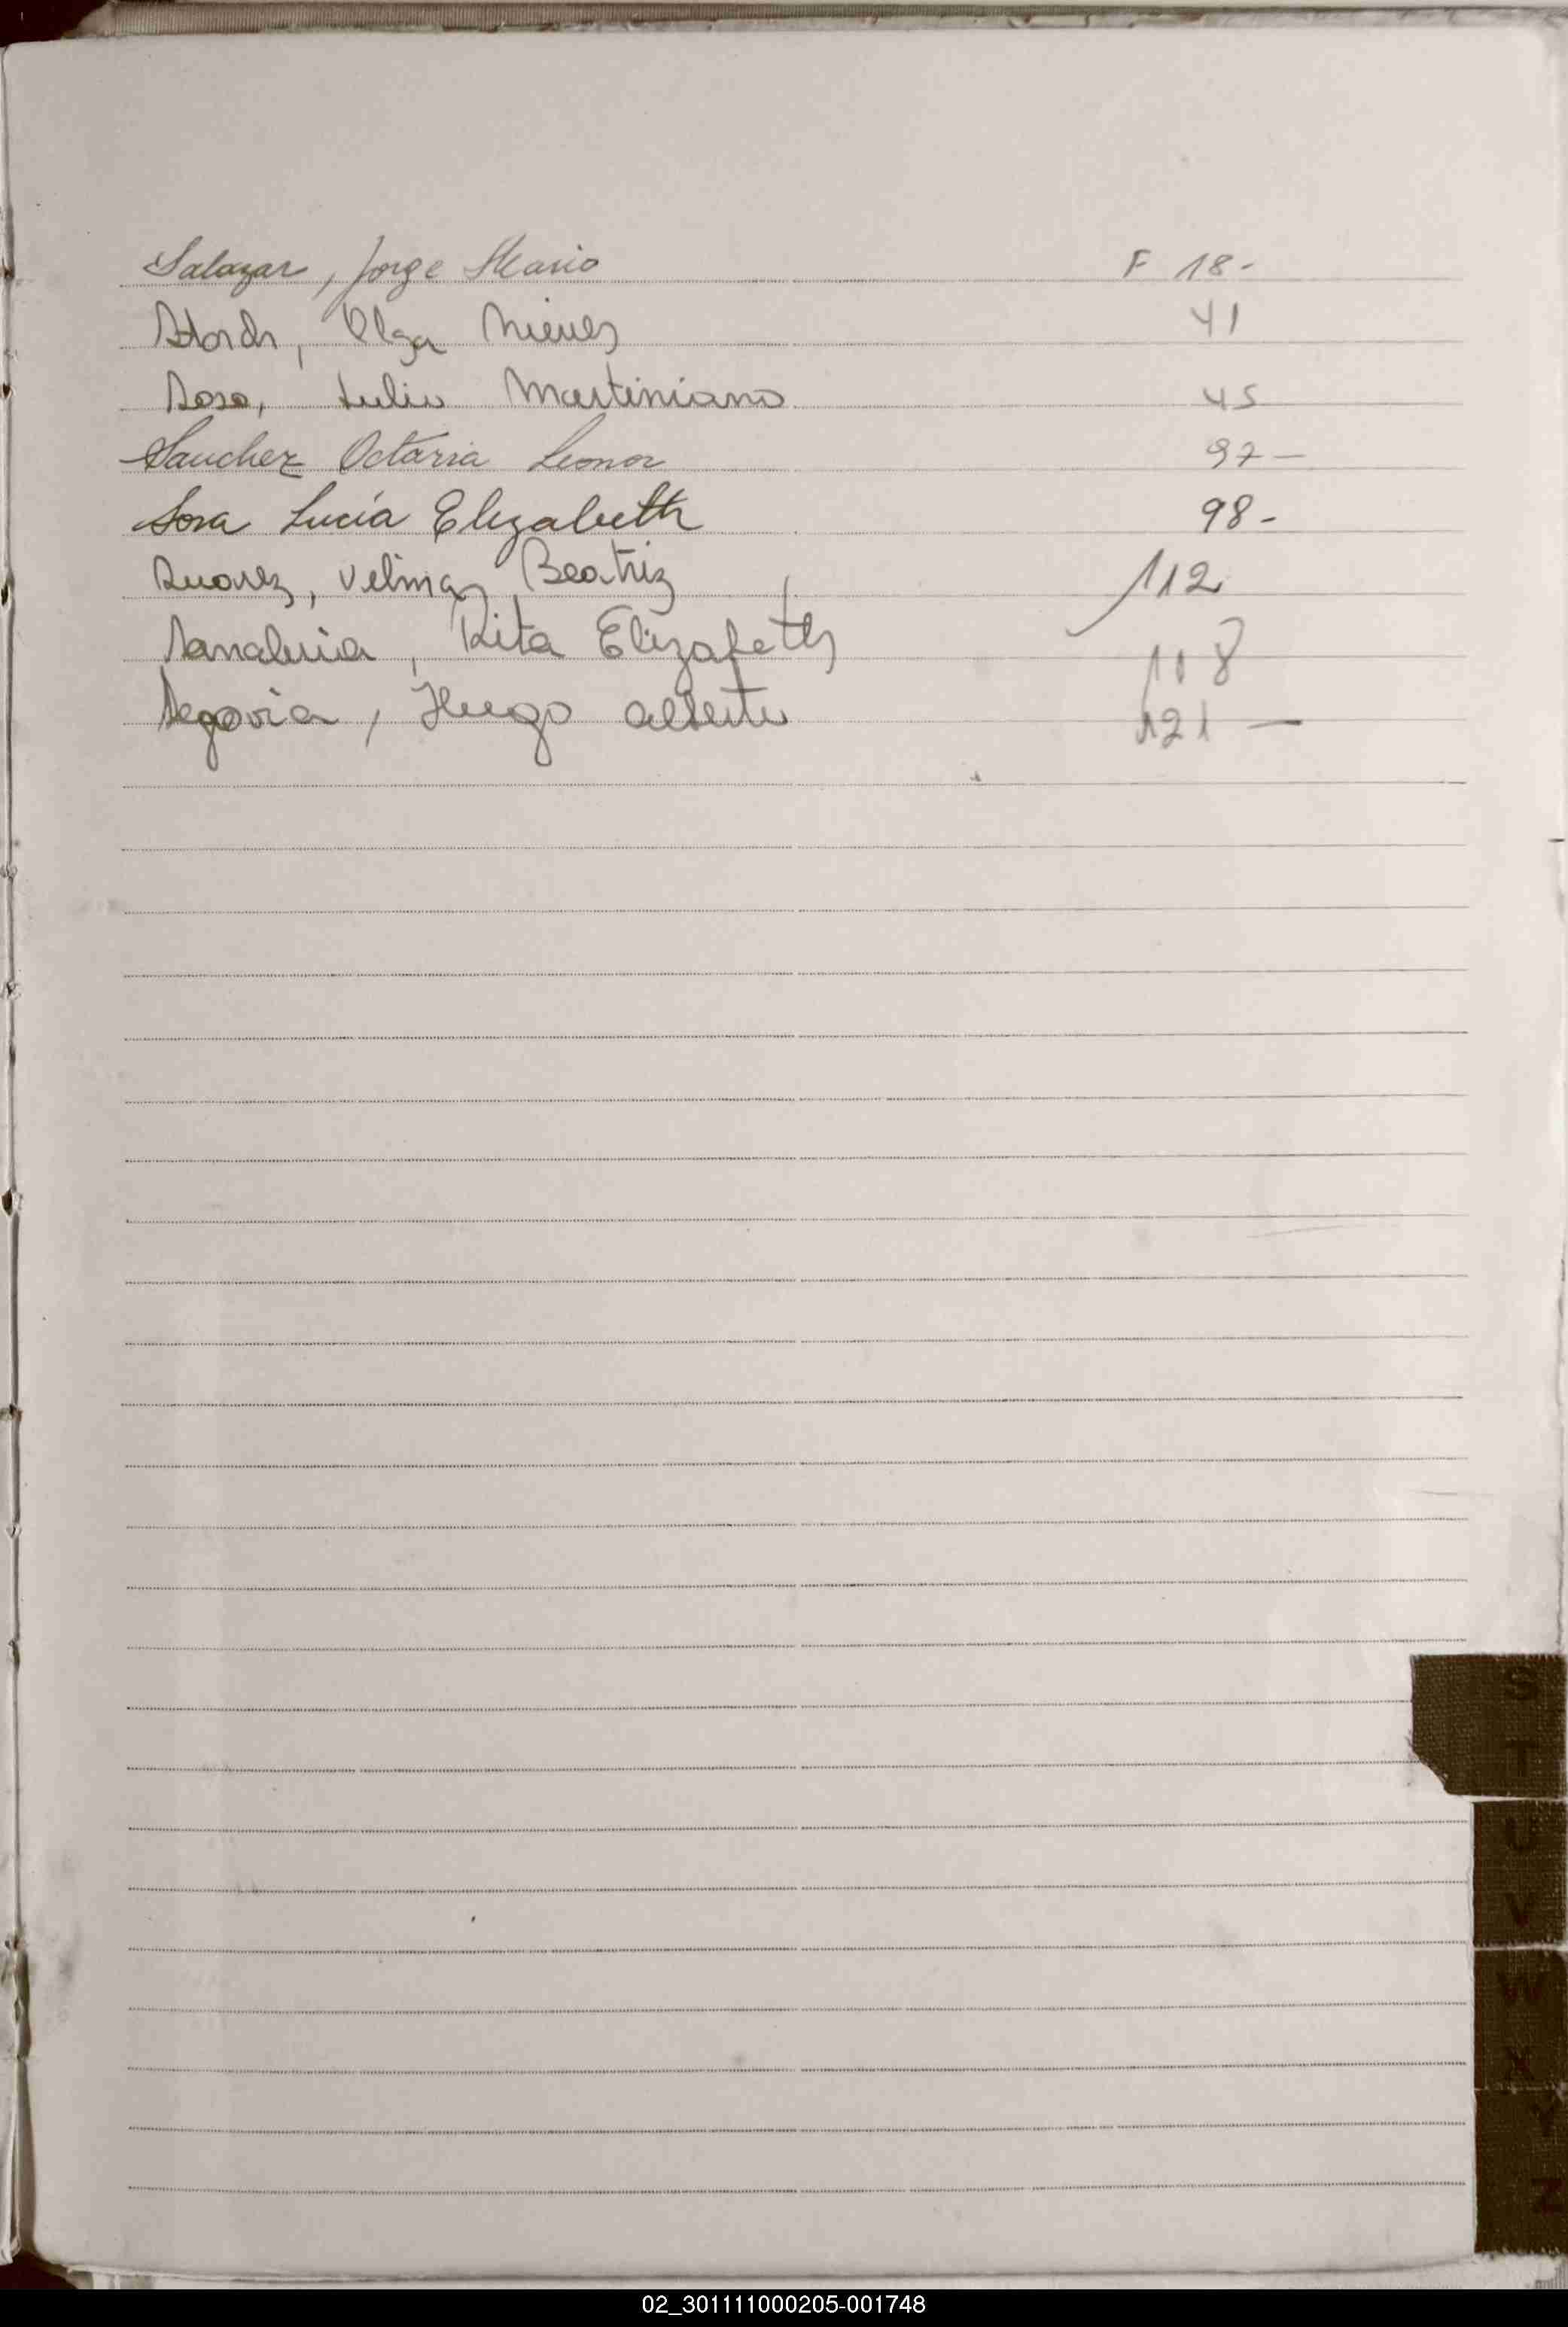 Salazar, Jorge Mario F 18-
Olga Nieves 41
Sosa, Julio Martiniano 45
Sanchez Octavia Leonor 97-
Sosa Lucía Elizabeth 98-
Suarez, Velma Beatriz 112
Sanabria, Rita Elizabeth 118
Segovia, Hugo Alberto 121 —
S
T
U
V
W
X
Y
Z
02_301111000205-001748